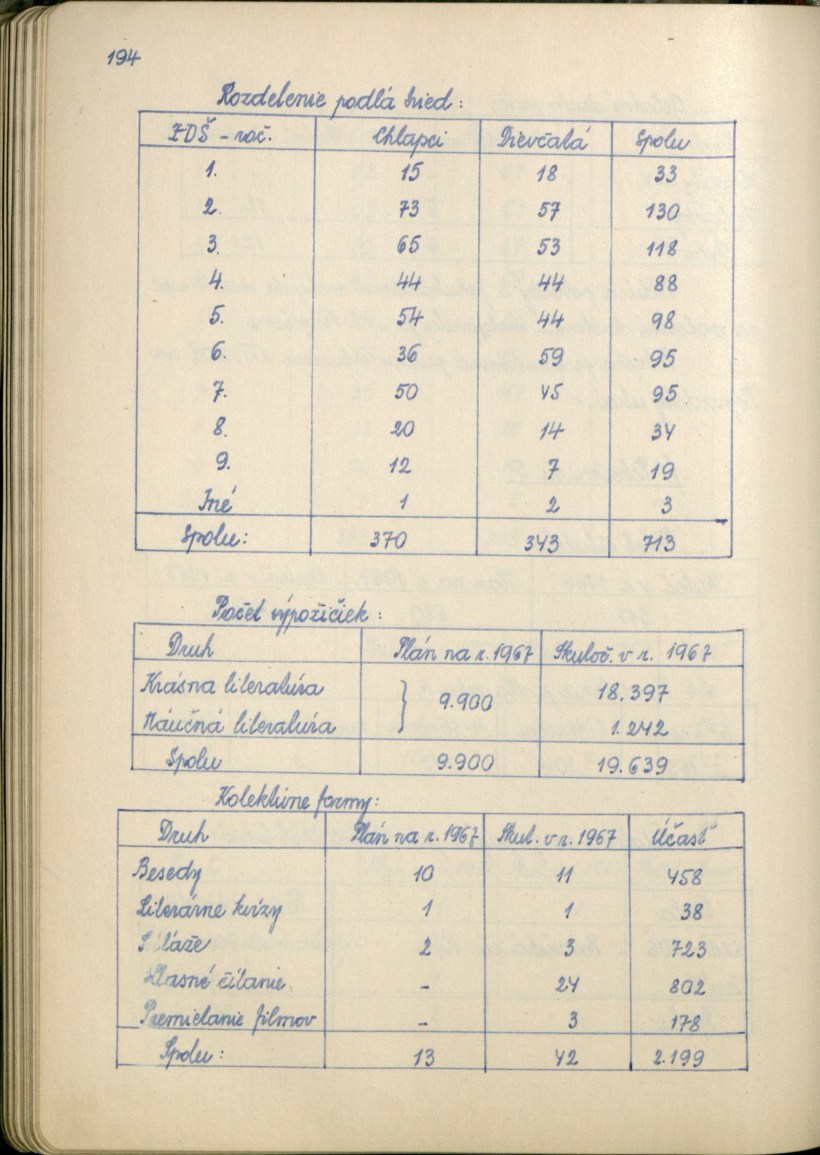 194
Rozdelenie podľa tried:
ZDŠ - roč. Chlapci Dievčatá Spolu
1. 15 18 33
2. 73 57 130
3. 65 53 118
4. 44 44 88
5. 54 44 98
6. 36 59 95
7. 50 45 95
8. 20 14 34
9. 12 7 19
Iné 1 2 3
Spolu: 370 343 713
Počet výpožičiek:
Druh Plán na r. 1967 Skutoč. v r. 1967
Krásna literatúra } 9.900 18.397
Náučná literatúra 1.242
Spolu 9.900 19.639
Kolektívne formy:
Druh Plán na r. 1967 Skut. v r. 1967 Účasť
Besedy 10 11 458
Literárne kvízy 1 1 38
Súťaže 2 3 723
Hlasné čítanie - 24 802
Premietanie filmov - 3 178
Spolu: 13 42 2.199